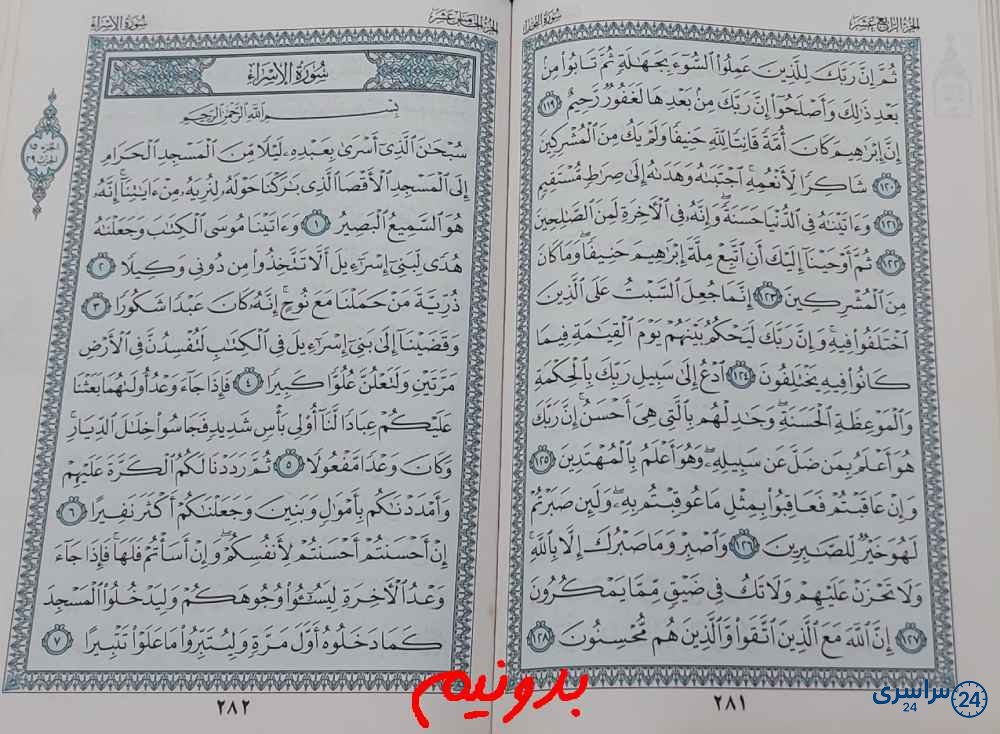 الجزء الرابع عشر
سورة النحل
ثُمَّ إِنَّ رَبَّكَ لِلَّذِينَ عَمِلُوا۟ ٱلسُّوٓءَ بِجَهَٰلَةٍۢ ثُمَّ تَابُوا۟ مِنۢ
بَعْدِ ذَٰلِكَ وَأَصْلَحُوٓا۟ إِنَّ رَبَّكَ مِنۢ بَعْدِهَا لَغَفُورٌۭ رَّحِيمٌ ١١٩
إِنَّ إِبْرَٰهِيمَ كَانَ أُمَّةًۭ قَانِتًۭا لِّلَّهِ حَنِيفًۭا وَلَمْ يَكُ مِنَ ٱلْمُشْرِكِينَ
١٢٠ شَاكِرًۭا لِّأَنْعُمِهِ ۚ ٱجْتَبَىٰهُ وَهَدَىٰهُ إِلَىٰ صِرَٰطٍۢ مُّسْتَقِيمٍۢ
١٢١ وَءَاتَيْنَٰهُ فِى ٱلدُّنْيَا حَسَنَةًۭ ۖ وَإِنَّهُۥ فِى ٱلْءَاخِرَةِ لَمِنَ ٱلصَّٰلِحِينَ
١٢٢ ثُمَّ أَوْحَيْنَآ إِلَيْكَ أَنِ ٱتَّبِعْ مِلَّةَ إِبْرَٰهِيمَ حَنِيفًۭا ۖ وَمَا كَانَ
مِنَ ٱلْمُشْرِكِينَ ١٢٣ إِنَّمَا جُعِلَ ٱلسَّبْتُ عَلَى ٱلَّذِينَ
ٱخْتَلَفُوا۟ فِيهِ ۚ وَإِنَّ رَبَّكَ لَيَحْكُمُ بَيْنَهُمْ يَوْمَ ٱلْقِيَٰمَةِ فِيمَا
كَانُوا۟ فِيهِ يَخْتَلِفُونَ ١٢٤ ٱدْعُ إِلَىٰ سَبِيلِ رَبِّكَ بِٱلْحِكْمَةِ
وَٱلْمَوْعِظَةِ ٱلْحَسَنَةِ ۖ وَجَٰدِلْهُم بِٱلَّتِى هِىَ أَحْسَنُ ۚ إِنَّ رَبَّكَ
هُوَ أَعْلَمُ بِمَن ضَلَّ عَن سَبِيلِهِۦ ۖ وَهُوَ أَعْلَمُ بِٱلْمُهْتَدِينَ ١٢٥
وَإِنْ عَاقَبْتُمْ فَعَاقِبُوا۟ بِمِثْلِ مَا عُوقِبْتُم بِهِۦ ۖ وَلَئِن صَبَرْتُمْ
لَهُوَ خَيْرٌۭ لِّلصَّٰبِرِينَ ١٢٦ وَٱصْبِرْ وَمَا صَبْرُكَ إِلَّا بِٱللَّهِ ۚ
وَلَا تَحْزَنْ عَلَيْهِمْ وَلَا تَكُ فِى ضَيْقٍۢ مِّمَّا يَمْكُرُونَ
١٢٧ إِنَّ ٱللَّهَ مَعَ ٱلَّذِينَ ٱتَّقَوا۟ وَّٱلَّذِينَ هُم مُّحْسِنُونَ ١٢٨
٢٨١
الجزء الخامس عشر
سورة الإسراء
سُورَةُ الإِسْرَاءِ
بِسْمِ ٱللَّهِ ٱلرَّحْمَٰنِ ٱلرَّحِيمِ
الجزء ١٥
الحزب ٢٩
سُبْحَٰنَ ٱلَّذِىٓ أَسْرَىٰ بِعَبْدِهِۦ لَيْلًۭا مِّنَ ٱلْمَسْجِدِ ٱلْحَرَامِ
إِلَى ٱلْمَسْجِدِ ٱلْأَقْصَا ٱلَّذِى بَٰرَكْنَا حَوْلَهُۥ لِنُرِيَهُۥ مِنْ ءَايَٰتِنَآ ۚ إِنَّهُۥ
هُوَ ٱلسَّمِيعُ ٱلْبَصِيرُ ١ وَءَاتَيْنَا مُوسَى ٱلْكِتَٰبَ وَجَعَلْنَٰهُ
هُدًۭى لِّبَنِىٓ إِسْرَٰٓءِيلَ أَلَّا تَتَّخِذُوا۟ مِن دُونِى وَكِيلًۭا ٢
ذُرِّيَّةَ مَنْ حَمَلْنَا مَعَ نُوحٍ ۚ إِنَّهُۥ كَانَ عَبْدًۭا شَكُورًۭا ٣
وَقَضَيْنَآ إِلَىٰ بَنِىٓ إِسْرَٰٓءِيلَ فِى ٱلْكِتَٰبِ لَتُفْسِدُنَّ فِى ٱلْأَرْضِ
مَرَّتَيْنِ وَلَتَعْلُنَّ عُلُوًّۭا كَبِيرًۭا ٤ فَإِذَا جَآءَ وَعْدُ أُولَىٰهُمَا بَعَثْنَا
عَلَيْكُمْ عِبَادًۭا لَّنَآ أُو۟لِى بَأْسٍۢ شَدِيدٍۢ فَجَاسُوا۟ خِلَٰلَ ٱلدِّيَارِ ۚ
وَكَانَ وَعْدًۭا مَّفْعُولًۭا ٥ ثُمَّ رَدَدْنَا لَكُمُ ٱلْكَرَّةَ عَلَيْهِمْ
وَأَمْدَدْنَٰكُم بِأَمْوَٰلٍۢ وَبَنِينَ وَجَعَلْنَٰكُمْ أَكْثَرَ نَفِيرًا ٦
إِنْ أَحْسَنتُمْ أَحْسَنتُمْ لِأَنفُسِكُمْ ۖ وَإِنْ أَسَأْتُمْ فَلَهَا ۚ فَإِذَا جَآءَ
وَعْدُ ٱلْءَاخِرَةِ لِيَسُۥٓـُٔوا۟ وُجُوهَكُمْ وَلِيَدْخُلُوا۟ ٱلْمَسْجِدَ
كَمَا دَخَلُوهُ أَوَّلَ مَرَّةٍۢ وَلِيُتَبِّرُوا۟ مَا عَلَوْا۟ تَتْبِيرًا ٧
٢٨٢
بدونیم
سراسری
24
24